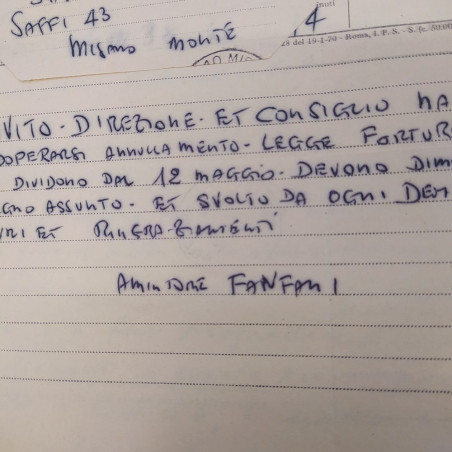 SAFFI 43
MISANO MONTE
4
nuti
28 del 19-1-70 - Roma, I. P. S. - S. (c. 50.00
VITO - DIREZIONE - ET CONSIGLIO NA
OPERARSI ANNULLAMENTO - LEGGE FORTUN
DIVIDONO DAL 12 MAGGIO - DEVONO DIM
GNO ASSUNTO - ET SVOLTO DA OGNI DEM
RI ET RINGRA-ZIAMENTI
AMINTORE FANFANI